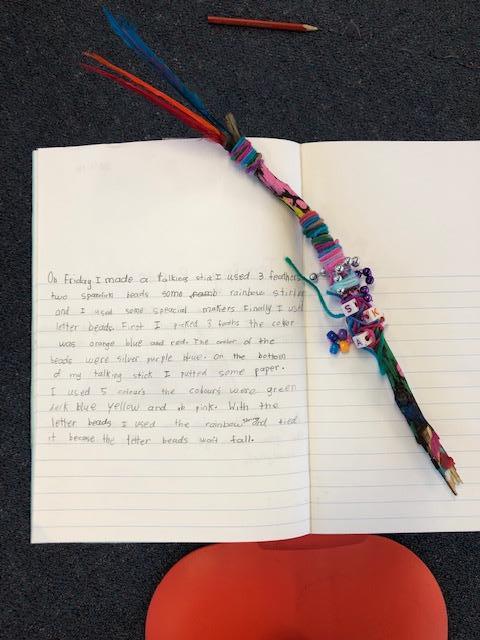 On Friday I made a talking stick I used 3 feathers
two beads some rainbow
and I used some makers Finally I used
letter beads. First I picked 3 the color
was orange blue and red. The of the
beads were silver purple blue. On the bottom
of my talking stick I putted some paper.
I used 5 colours the colours were green
blue yellow and pink. With the
letter beads I used the rainbow and tied
it the letter beads wont fall.
S
K